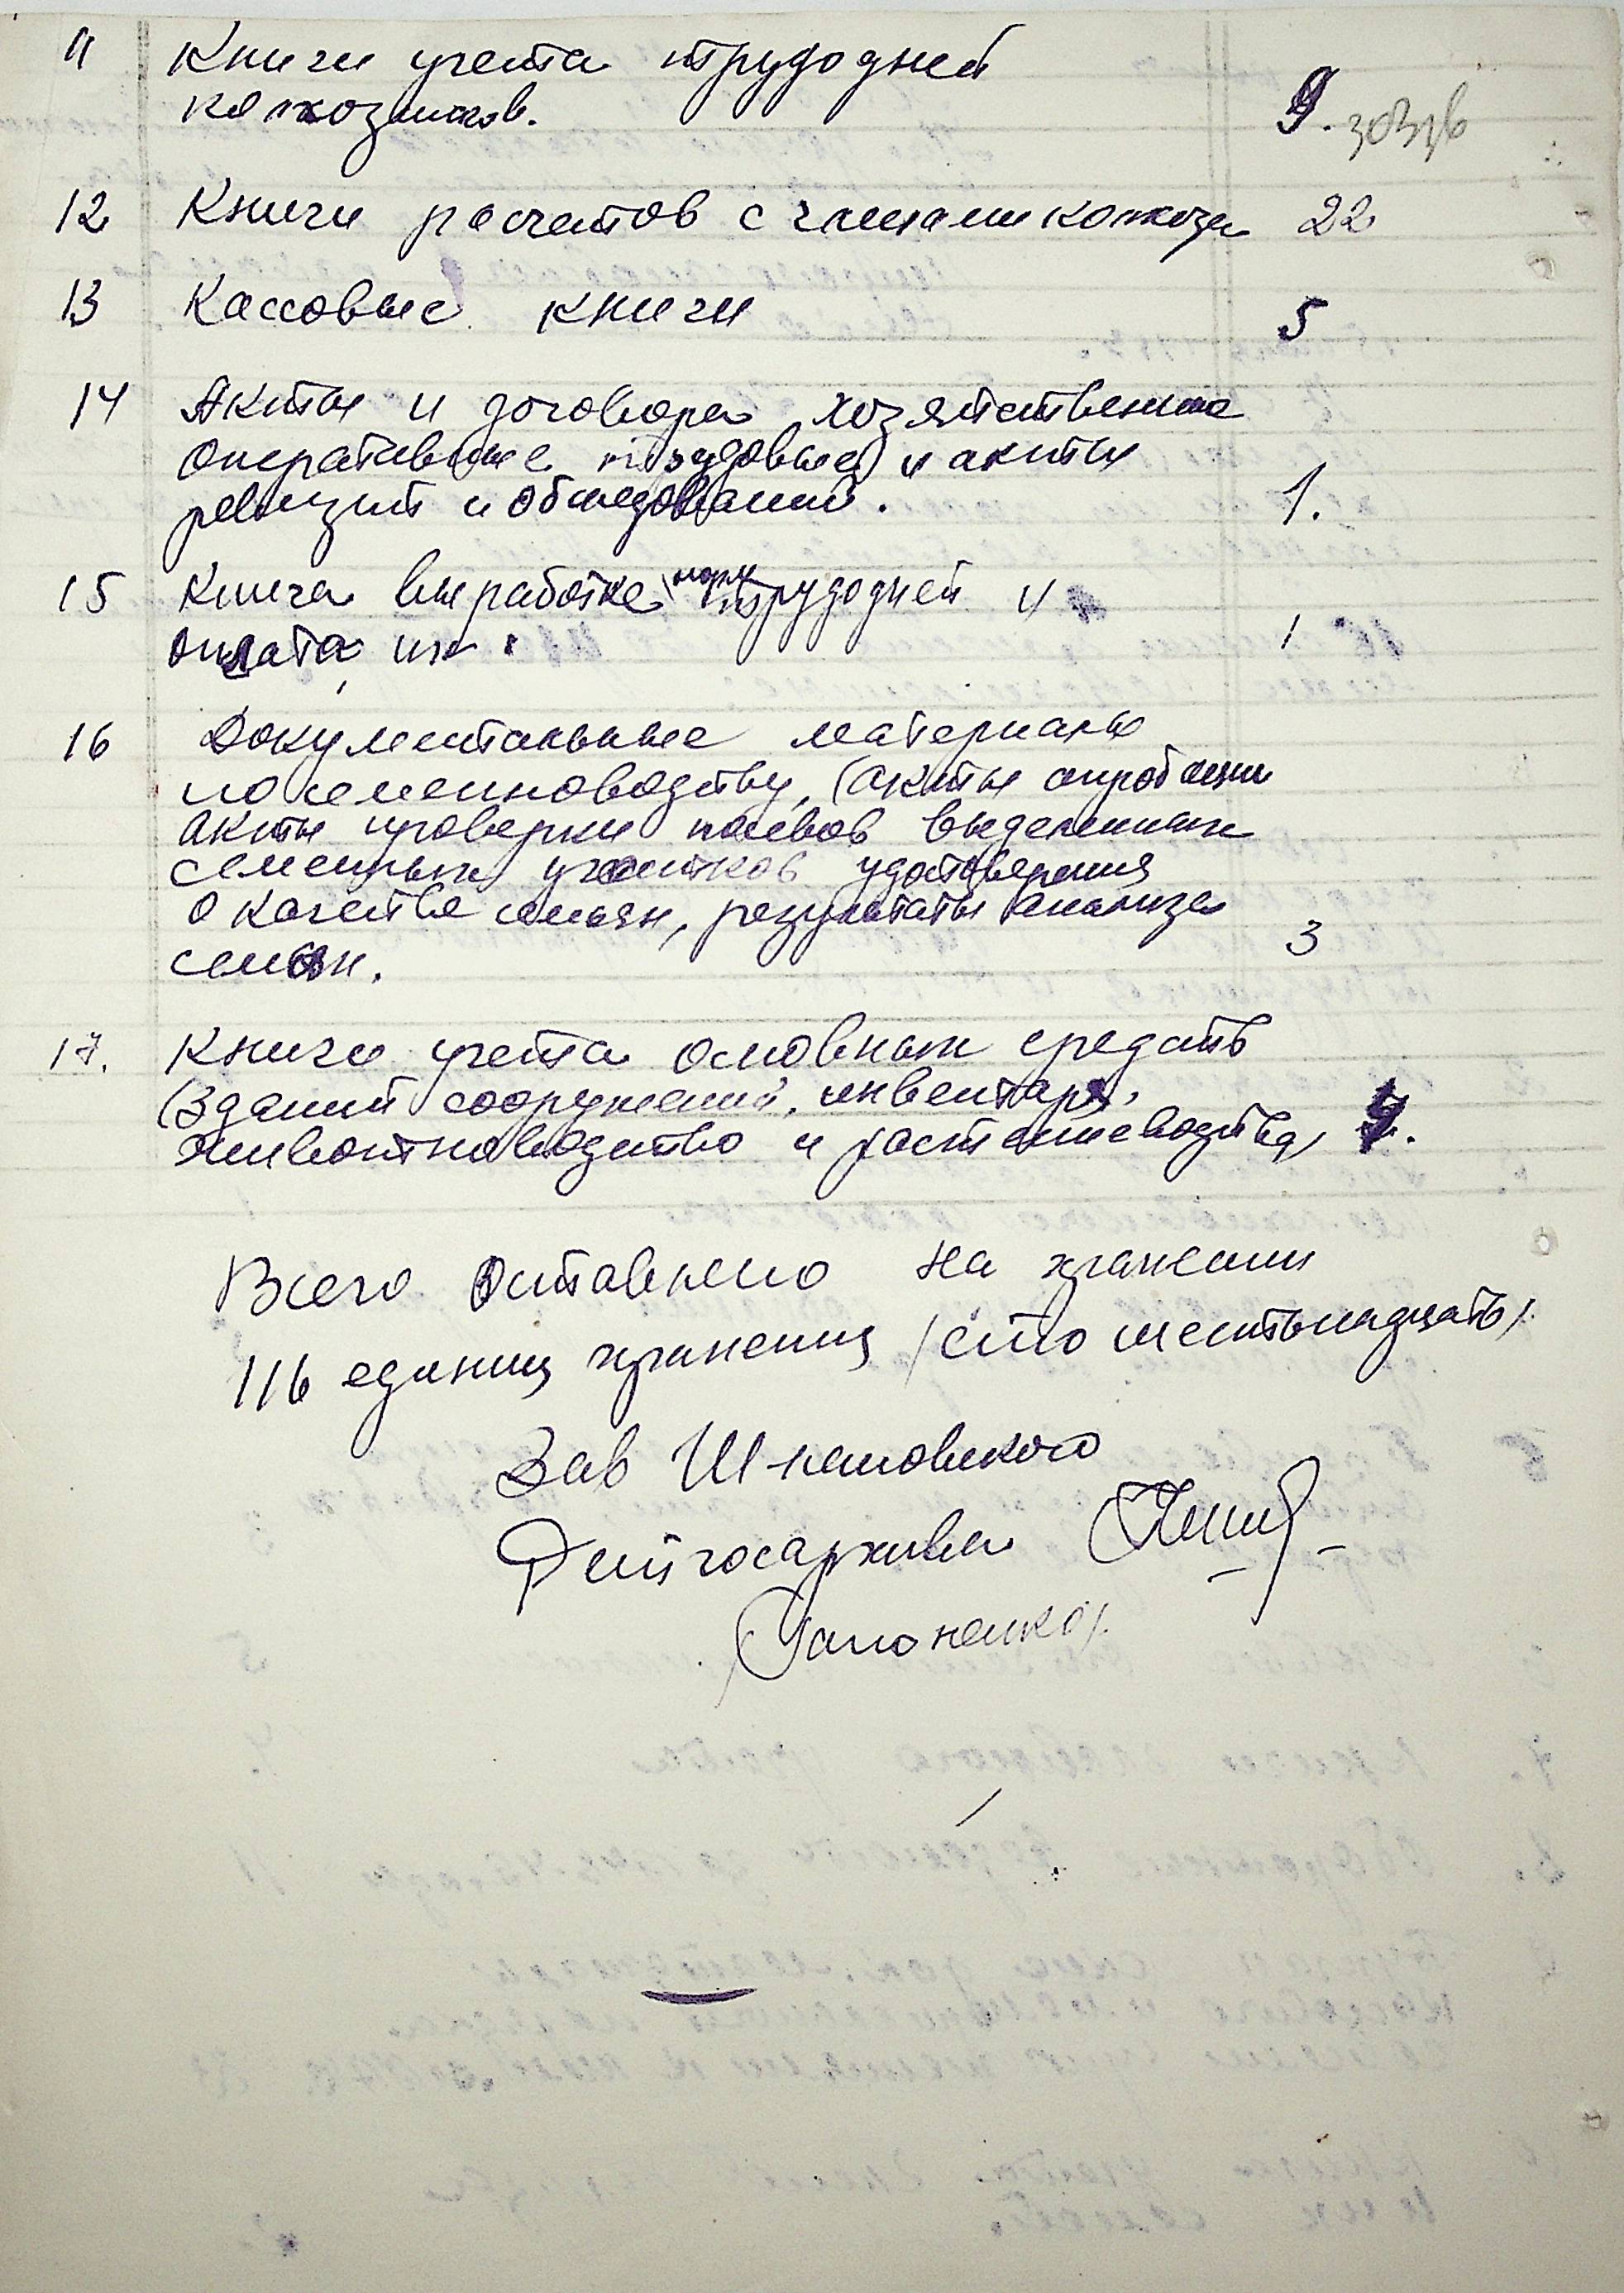 11 Книги учета трудодней
колхозников. 9.
12 Книги расчетов с членами колхоза 22
13 Кассовые книги 5
14 Акты и договора хозяйственные
оперативные трудовые и акты
ревизий и обследований. 1.
15 Книга выработке норм трудодней и
оплата их. 1
16 Документальные материалы
по семеноводству, (акты апробации
акты проверки посевов выделенных
семенных участков удостоверения
о качестве семян, результаты анализа
семян. 3
17. Книги учета основных средств
(зданий сооружений, инвентаря,
животноводство и растениеводства) 7.
Всего оставлено на хранении
116 единиц хранения /сто шестьнадцать/.
Зав Шполовского
Райгосархива
/Гапоненко/.